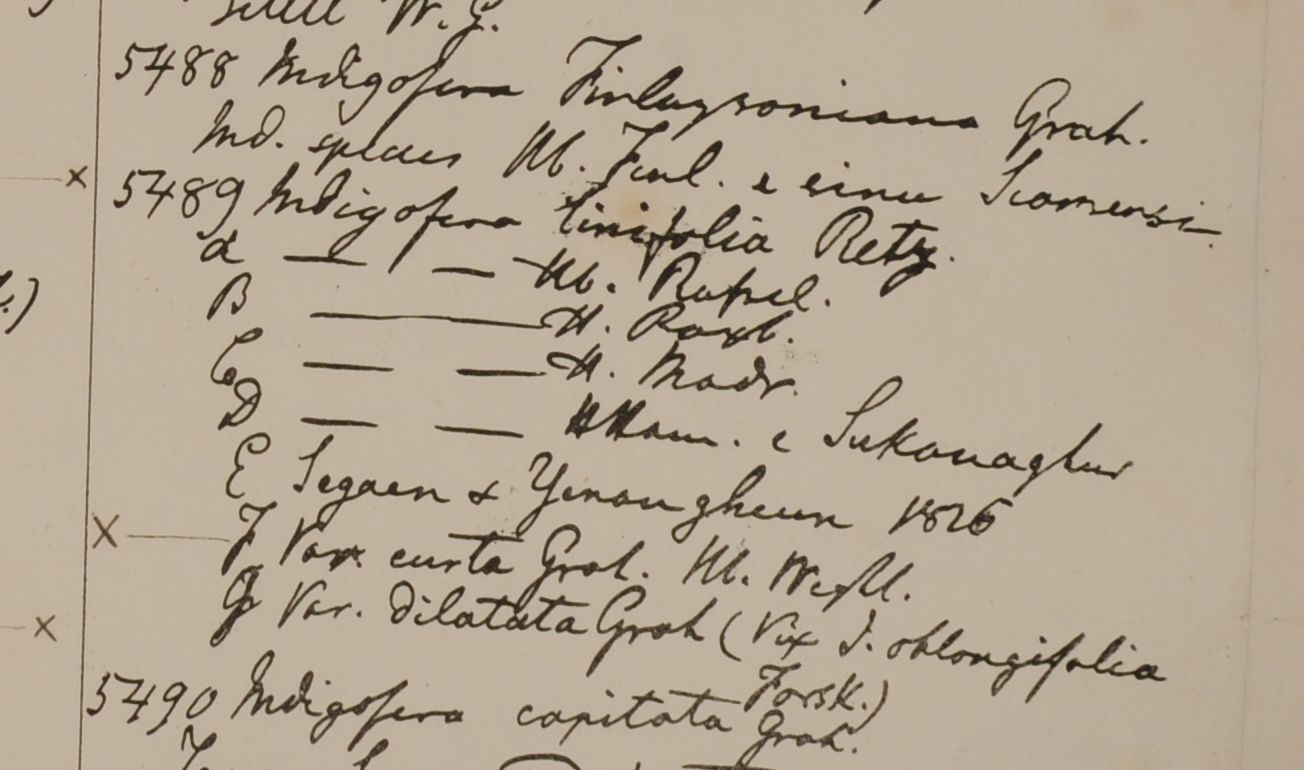 W.G.
5488 Indigofera Finlaysoniana Grah.
Ind. species Hb. Finl. e sinu Siamensi
5489 Indigofera linifolia Retz.
a — — Hb. Russel.
B — H. Roxb.
C — — H. Madr.
D — — HHam. e Sukanaghur
E Segaen & Yenangheun 1826
F Var. curta Grah. Hb. Wight.
G Var. dilatata Grah (Vix I. oblongifolia
Forsk.)
5490 Indigofera capitata Grah.